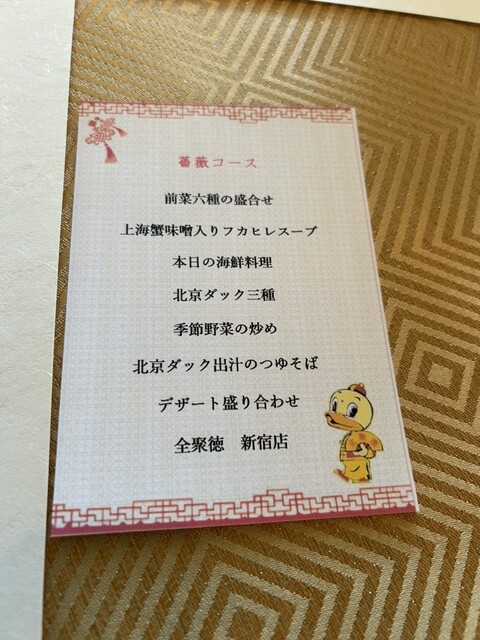 薔薇コース
前菜六種の盛合せ
上海蟹味噌入りフカヒレスープ
本日の海鮮料理
北京ダック三種
季節野菜の炒め
北京ダック出汁のつゆそば
デザート盛り合わせ
全聚徳　新宿店